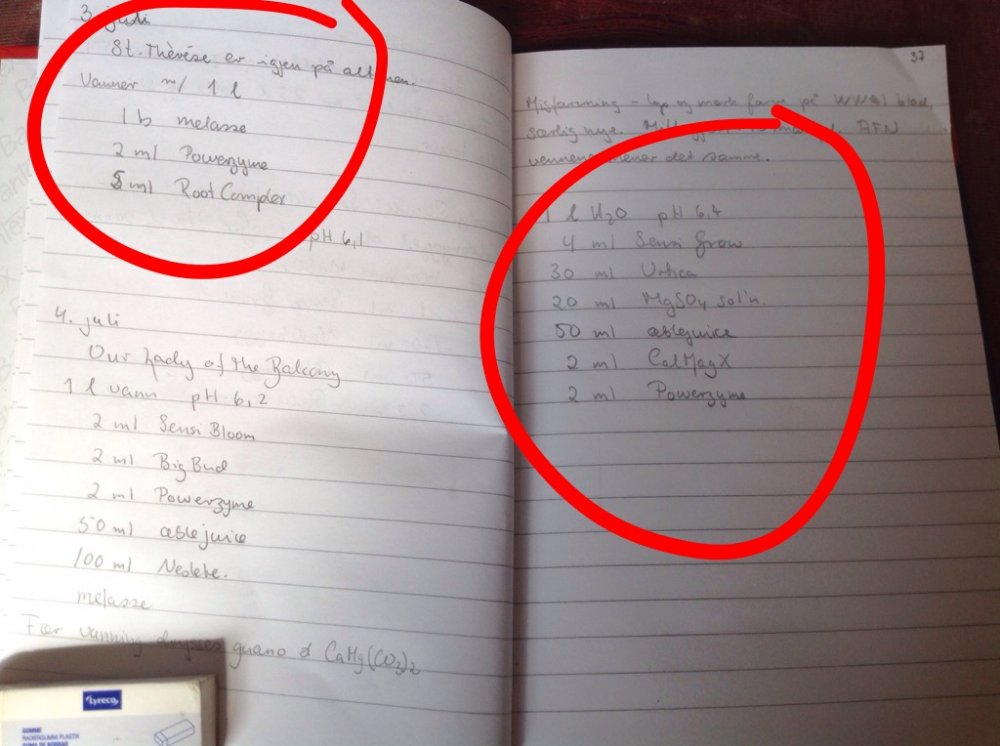 3. juli
St. Thérèse er igjen på altanen.
Vanner m/ 1 l
1 b melasse
2 ml Powerzyme
5 ml Root Complex
pH 6,1
4. juli
Our Lady of the Balcony
1 l vann pH 6,2
2 ml Sensi Bloom
2 ml Big Bud
2 ml Powerzyme
50 ml eplejuice
100 ml Neslete.
melasse
Før vanning drysses guano & CaMg(CO3)2
Lyreco
GOMME
RADIERGUMMI PLASTIK
GOMA DE BORRAR
37
Misfarvning - og mørk farve på WW#1 blad,
særlig nye. AFN
vennene mener det samme.
1 l H2O pH 6,4
4 ml Sensi Grow
30 ml Urtica
20 ml MgSO4 sol'n.
50 ml eplejuice
2 ml CalMagX
2 ml Powerzyme